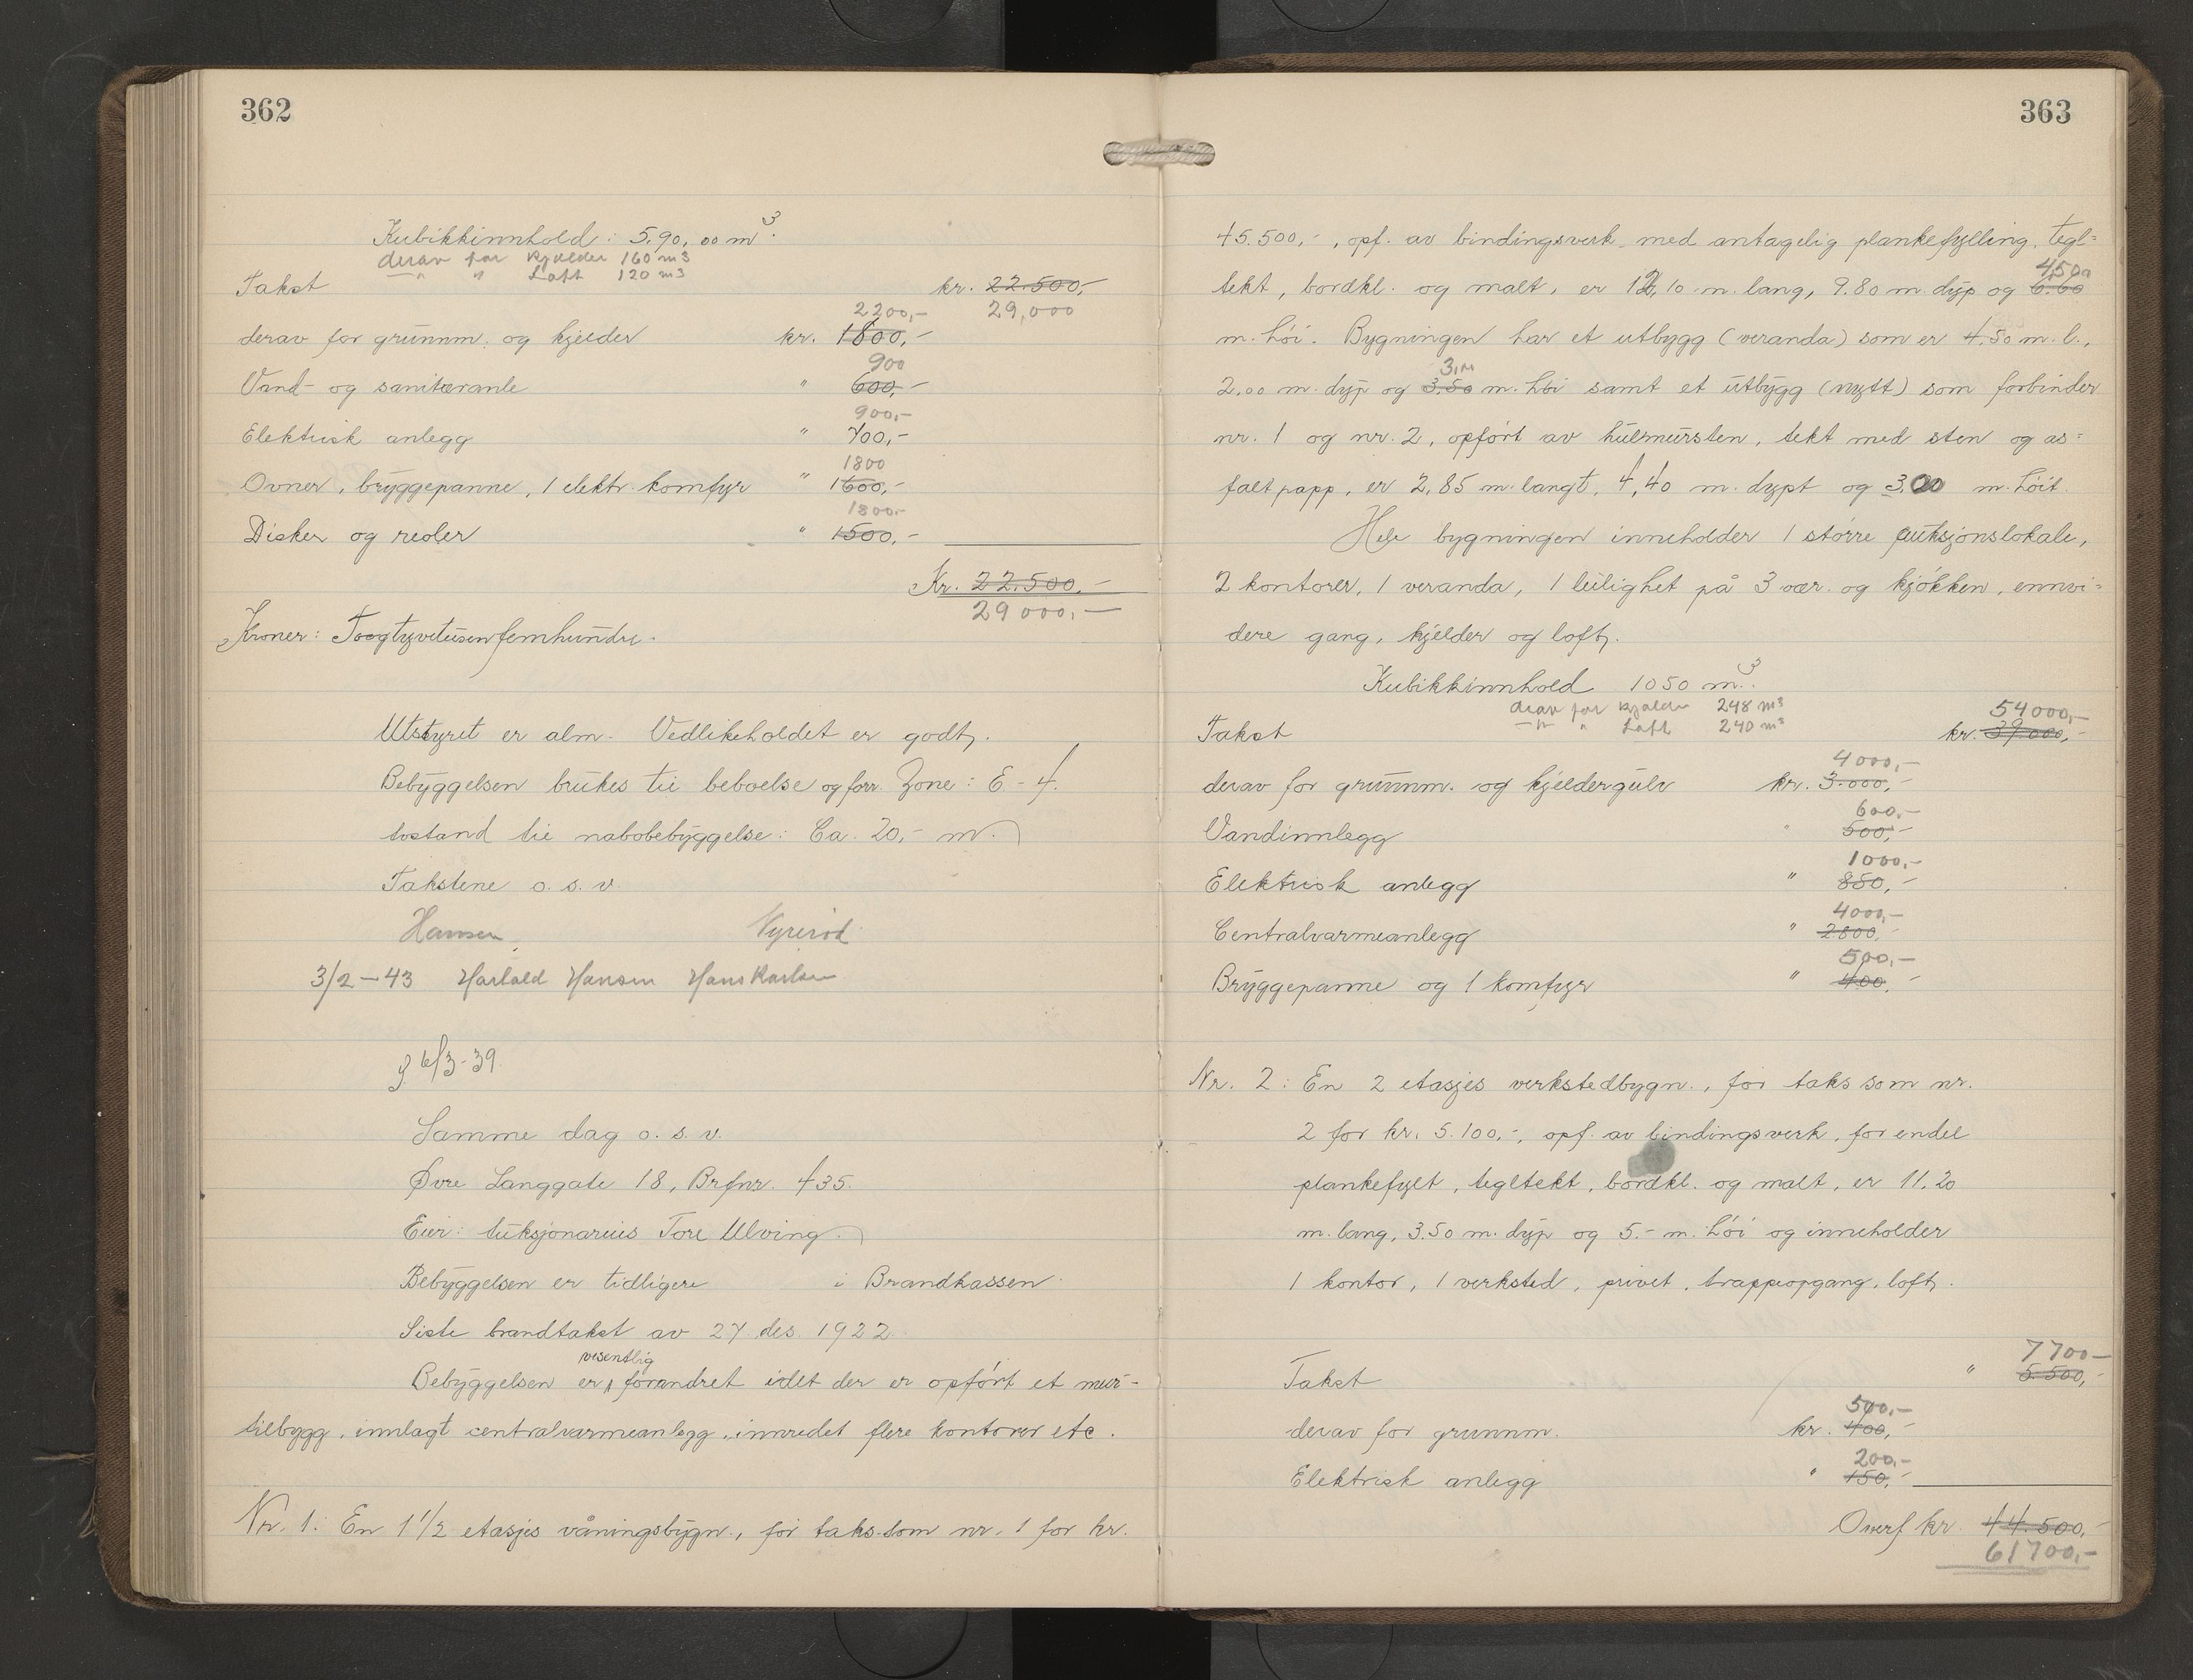 362
Kubikkinnhold: 590,00 m3.
derav for Kjelder 160 m3
—"— " Loft 120 m3
Takst kr. 22.500,-
29,000
2200,-
derav for grunnm. og kjelder kr. 1800,-
900
Vand- og sanitæranle " 600,-
900,-
Elektrisk anlegg " 700,-
1800
Ovner, bryggepanne, 1 elektr. komfyr " 1600,-
1800,-
Disker og reoler " 1500,-
Kr. 22.500,-
29000,-
Kroner: Toogtyvetusenfemhundre.
Utstyret er alm. Vedlikeholdet er godt,
Bebyggelsen brukes til beboelse og forr. Zone: E - 4.
Avstand til nabobebyggelse: Ca. 20,- m.
Takstene o. s. v.
Hansen Nyrerød
3/2-43 Harald Hansen Hans Karlsen
6/3-39
Samme dag o. s. v.
Øvre Langgate 18, Brfnr. 435.
Eier: Auksjonarius Tore Ulving.
Bebyggelsen er tidligere i Brandkassen
Siste brandtakst av 27 des. 1922.
vesentlig
Bebyggelsen er forandret idet der er opført et mur-
tilbygg, innlagt centralvarmeanlegg, innredet flere kontorer etc.
Nr. 1: En 1 1/2 etasjes våningsbygn., før taks. som nr. 1 for kr.
363
45.500,-, opf. av bindingsverk med antagelig plankefylling, tegl=
4,50
tekt, bordkl. og malt, er 12,10 m. lang, 9.80 m. dyp og 6.60
m. høi. Bygningen har et utbygg (veranda) som er 4.50 m. l.,
3,
2.00 m. dyp og 3.50 m. høi samt et utbygg (nytt) som forbinder
nr. 1 og nr. 2, opført av hulmursten, tekt med sten og as=
faltpapp, er 2,85 m. langt, 4,40 m. dypt og 3.00 m. høit.
Hele bygningen inneholder 1 større auksjonslokale,
2 kontorer, 1 veranda, 1 leilighet på 3 vær. og kjøkken, ennvi=
dere gang, kjelder og loft,
Kubikkinnhold 1050 m3.
derav for Kjelder 248 m3
—"— " Loft 240 m3
54000,-
Takst kr. 39.000,-
4000,-
derav for grunnm. og kjeldergulv kr. 3.000,-
600,-
Vandinnlegg " 500,-
1000,-
Elektrisk anlegg " 850,-
4000,-
Centralvarmeanlegg " 2.800,-
500,-
Bryggepanne og 1 komfyr " 400,-
Nr. 2: En 2 etasjes verkstedbygn., før taks som nr.
2 for kr. 5.100,-, opf. av bindingsverk, for endel
plankefylt, tegltekt, bordkl. og malt, er 11.20
m. lang, 3.50 m. dyp og 5.- m. høi og inneholder
1 kontor, 1 verksted, privet, trappeopgang, loft,
7700-
Takst " 5.500,-
500,-
derav for grunnm. kr. 400,-
200,-
Elektrisk anlegg " 150,-
Overf kr. 44.500,-
61700,-